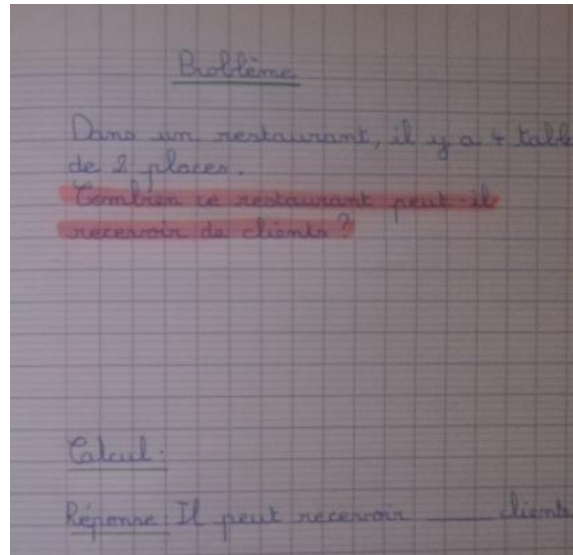 Problème
Dans un restaurant, il y a 4 table
de 2 places.
Combien ce restaurant peut-il
recevoir de clients ?
Calcul :
Réponse : Il peut recevoir ____ clients